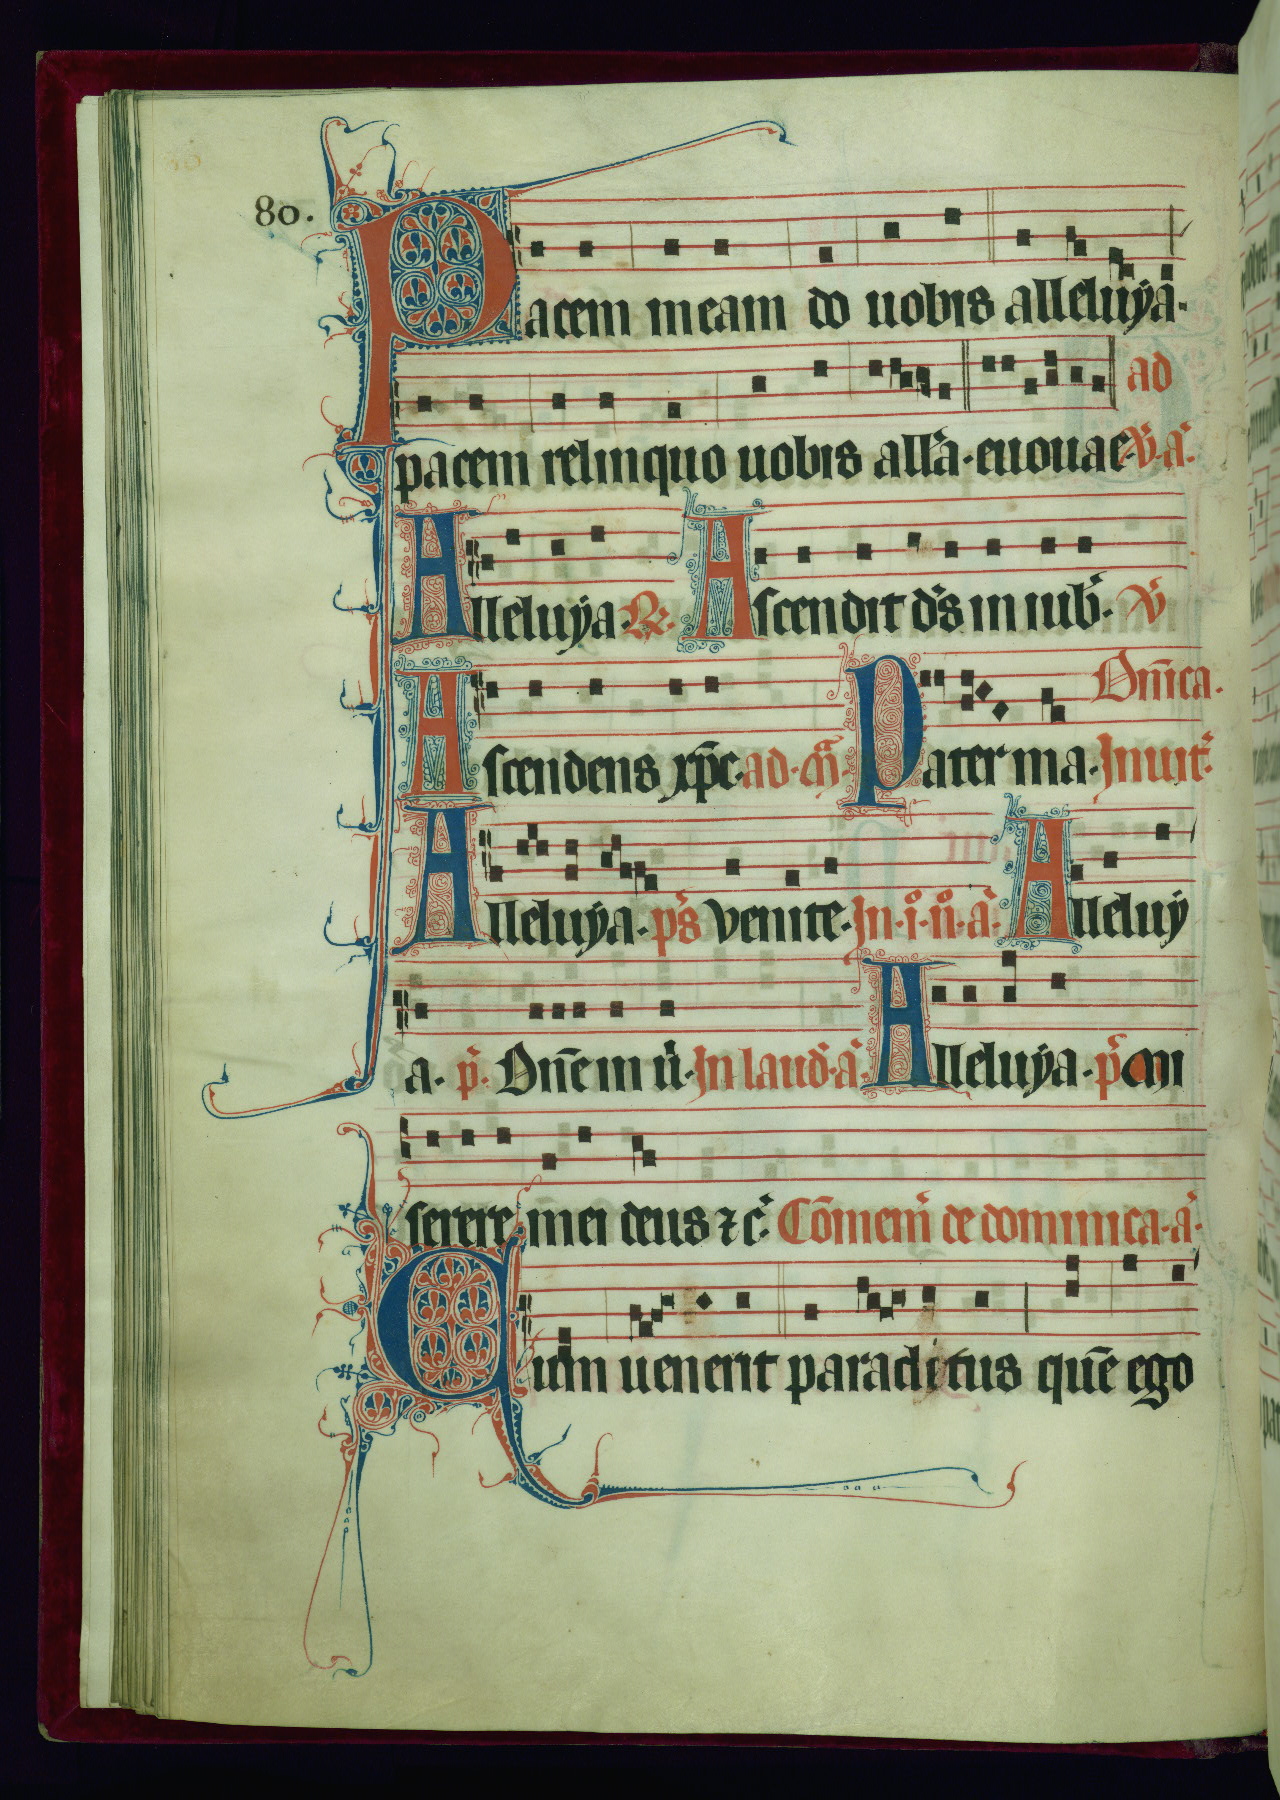 80.
Pacem meam do uobis alleluẏa.
ad
pacem relinquo uobis all'a. euouae. V. a'.
Alleluẏa. R. Ascendit d's in iub'. V'
Dn̄ica.
Ascendens xp̄c. ad. m̄. Pater ma. Inuit'.
Alleluẏa. p's venite. In. i. n. a'. Alleluẏ
a. p'. Dn̄e in u'. In laud'. a'. Alleluẏa. p'. mi
serere mei deus ⁊c'. Cōmem' de dominica. a'.
Cum uenerit paraclitus quē ego